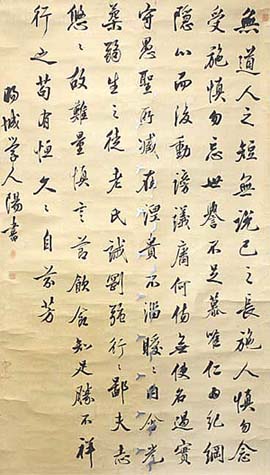 無道人之短無說己之長施人慎勿念
受施慎勿忘世譽不足慕唯仁為紀綱
隱心而後動謗議庸何傷無使名過實
守愚聖所臧在涅貴不淄曖々內含光
柔弱生之徒老氏誡剛強行々鄙夫志
悠々故難量慎言節飲食知足勝不祥
行之苟有恒久々自芬芳
城学人陽書